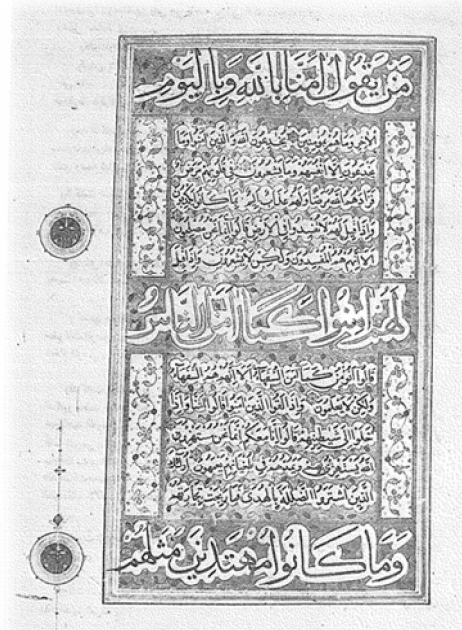 مَنْ يَقُولُ اٰمَنَّا بِاللّٰهِ وَبِالْيَوْمِ
الاخر وما هم بمؤمنين يخدعون الله والذين امنوا وما
يخدعون الا انفسهم وما يشعرون في قلوبهم مرض
فزادهم الله مرضا ولهم عذاب اليم بما كانوا يكذبون
واذا قيل لهم لا تفسدوا في الارض قالوا انما نحن مصلحون
الا انهم هم المفسدون ولكن لا يشعرون واذا قيل
لَهُمْ اٰمِنُوا كَمَا اٰمَنَ النَّاسُ
قالوا انؤمن كما امن السفهاء الا انهم هم السفهاء
ولكن لا يعلمون واذا لقوا الذين امنوا قالوا امنا واذا
خلوا الى شيطينهم قالوا انا معكم انما نحن مستهزؤن
الله يستهزئ بهم ويمدهم في طغيانهم يعمهون اولئك
الذين اشتروا الضلالة بالهدى فما ربحت تجارتهم
وَمَا كَانُوا مُهْتَدِينَ مَثَلُهُمْ